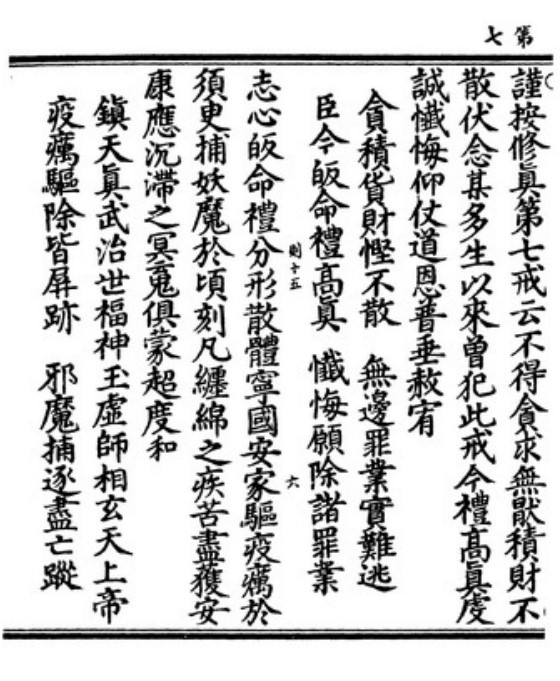 第七
謹按修眞第七戒云不得貪求無猒積財不
散伏念某多生以來曾犯此戒今禮高眞虔
誠懺悔仰仗道恩普垂赦宥
貪積貨財慳不散　無邊罪業實難逃
臣今皈命禮高眞　懺悔願除諸罪業
則十五
六
志心皈命禮分形散體寧國安家驅疫癘於
須臾捕妖魔於頃刻凡纏綿之疾苦盡獲安
康應沉滯之冥䰟俱蒙超度和
鎮天眞武治世福神玉虛師相玄天上帝
疫癘驅除皆屏跡　邪魔捕逐盡亡蹤